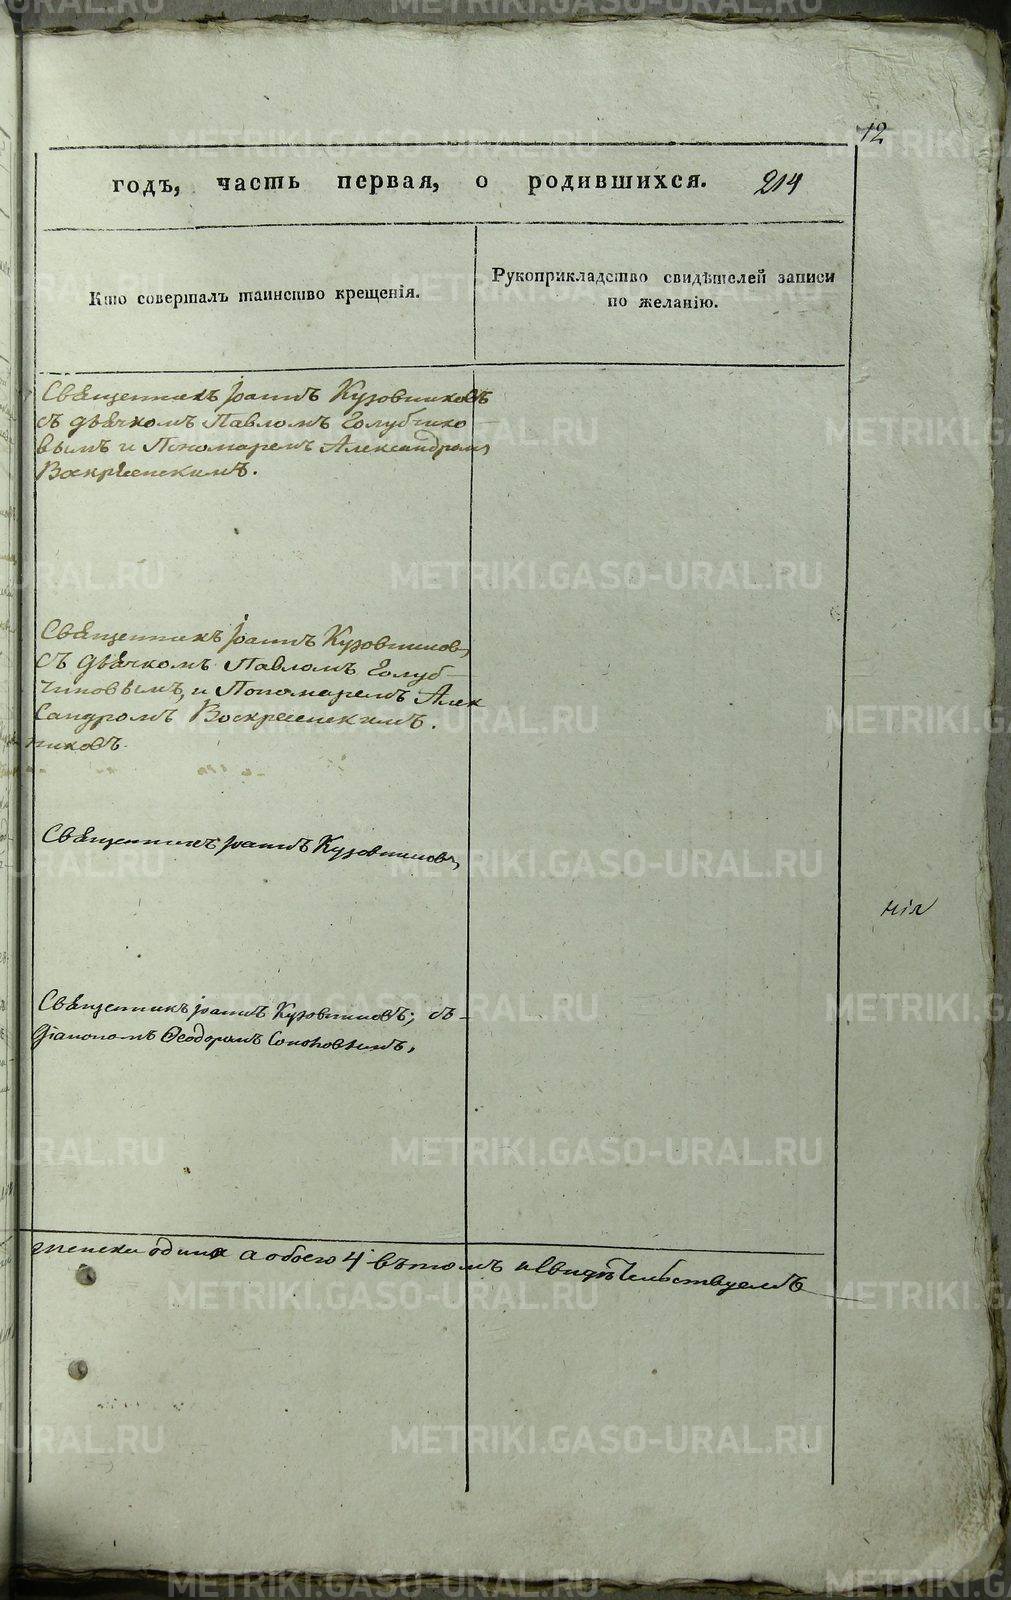 12
годъ, часть первая, о родившихся. 214
Кто совершалъ таинство крещенія.
Рукоприкладство свидѣтелей записи
по желанію.
Священникъ Іоаннъ Кузовниковъ
съ дьячкомъ Павломъ Голубчико
вымъ и Пономаремъ Александромъ
Воскресенскимъ.
Священникъ Іоаннъ Кузовниковъ,
съ дьячкомъ Павломъ Голуб-
чиковымъ, и Пономаремъ Алек
сандромъ Воскресенскимъ.
никовъ.
Священникъ Іоаннъ Кузовниковъ,
нія
Священникъ Іоаннъ Кузовниковъ; съ
Діакономъ Ѳеодоромъ
женска а обоего 4 въ томъ и свидѣтельствуемъ
METRIKI.GASO-URAL.RU